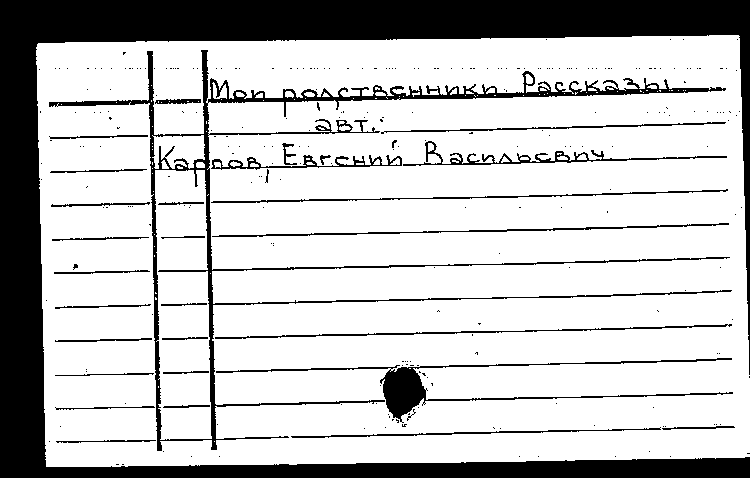 Мои родственники. Рассказы.
авт.:
Карпов, Евгений Васильевич.